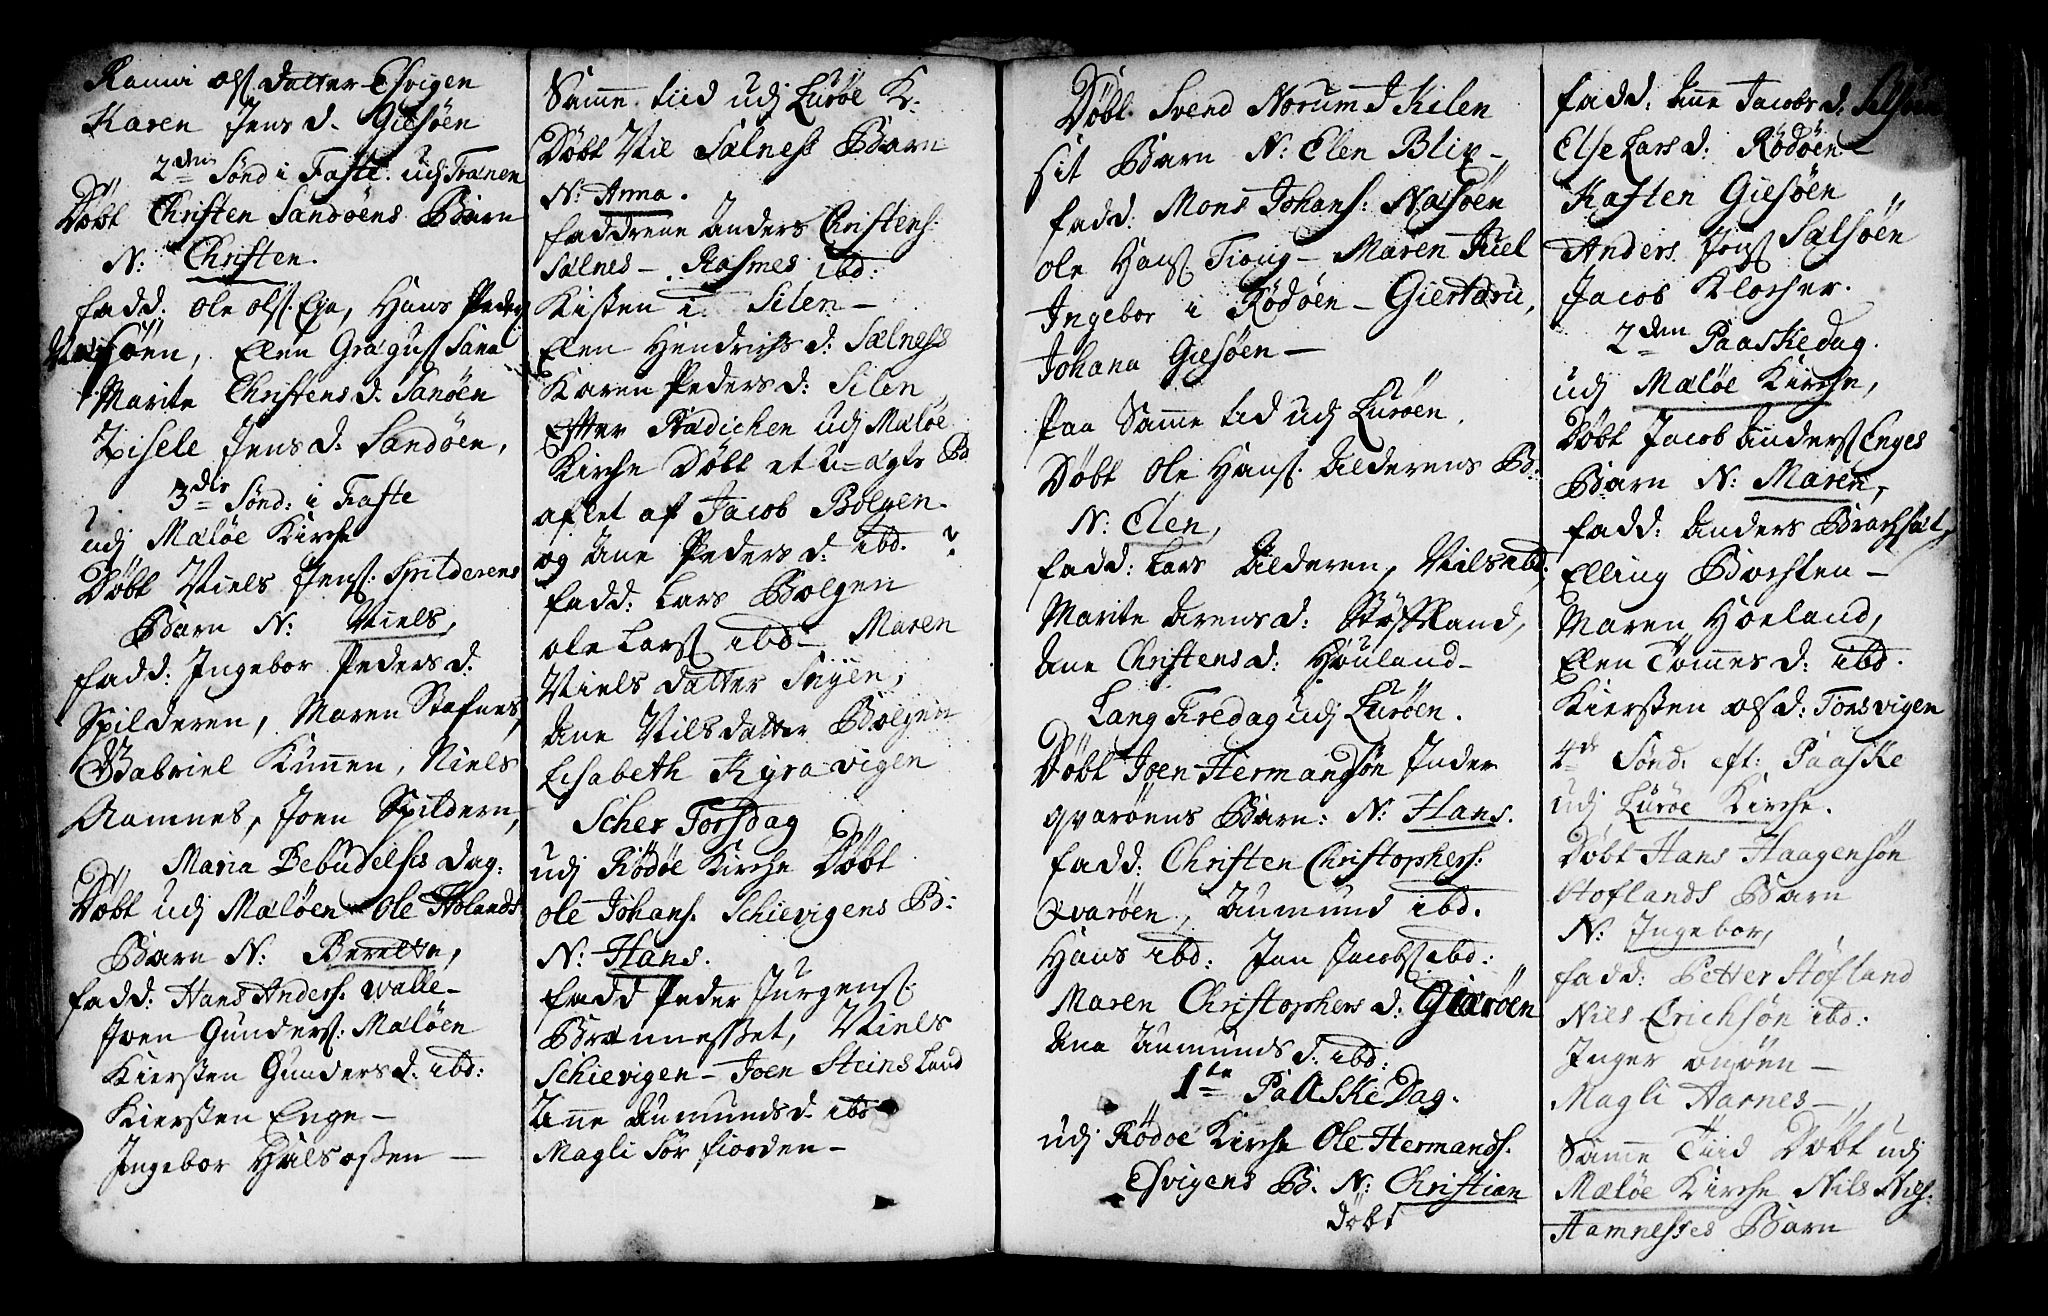 Rami ols datter Esvigen
Karen Jens d. Giesöen
2den Sönd i Faste. udj Trænen
Döbt Christen Sandöens Barn
N: Christen.
fadd: ole ols: Eja, Hans Peders
Elen Græguss Sanö
Marite Christens d. Sanöen
Zisele Jens d: Sandöen,
3die Sönd: i Faste
udj Melöe Kirche
Döbt Niels Jens: Spilderens
Barn N: Niels,
fadd: Ingebor Peders d:
Spilderen, Maren Stafnes,
Gabriel Kunnen, Niels
Aamnes, Joen Spildern,
Maria Bebudelses dag:
Döbt udj Mælöen Ole Holands
Barn N: Berette,
fadd: Hans Anders: Walle-
Joen Gunders: Mælöen
Kiersten Gunders d. ibd:
Kiersten Enge-
Ingebor Halsosen-
Samme tiid udj Luröe K:
Döbt Nil Selness Barn
N: Anna.
faddrene Anders Christens:
Selnes- Rasmes ibd:
Kisten i Silen-
Elen Hendrichs d: Selness
Karen Peders d: Silen
Efter Prædichen udj Mælöe
Kirche Döbt et u-ægte B:
aflet af Jacob Bolgen.
og Ane Peders d: ibd. ?
fadd: Lars Bolgen
ole Larss ibd- Maren
Niels datter
Ane Nilsdatter Bolgen
Lisabeth Kyravigen
Scher Torsdag
udj Rödöe Kirche Döbt
ole Johans. Schievigens B:
N: Hans.
fadd Peder Jürgens:
Brænnesset, Niels
Schievigen- Joen Steinsland
Anne Aumunds d. ibd
Magli Sör fiorden-
Döbt. Svend Norum I Kilen
sit Barn N: Elen Blix-
fadd: Mons Johans: Næsöen
ole Hans: Tiong- Maren Juel
Ingebor i Rödöen- Giertdru,
Johana Giesöen-
Paa Samme tid udj Luröen.
Döbt Ole Hans. Alderens B:
N: Elen,
fadd: Lars Alderen, Nils ibd.
Marite Arens d: Stöfland,
Ane Christens d: Houland-
Lang Fredag udj Luröen.
Döbt Joen Hermandsön Inder
qvaröens Barn: N: Hans.
fadd: Christen Christophers:
Qvaröen, Aumund ibd.
Hans ibd: Jan Jacobs ibd:
Maren Christophers d:
Ane Aumunds d. ibd:
1te Paaske Dag.
udj Rödöe Kirche Ole Hermands:
Esvigens B. N: Christian
döbt
fadd: Ane Jacobs d:
Else Lars d: Rödöen-
Kasten Giesöen
Anders Jens Selsöen
Jacob Klocher.
2den Paaskedag.
udj Melöe Kirche,
Döbt Jacob Anderss Enges
Barn N: Maren,
fadd: Anders Brachsæt,
Elling Bochsten-
Maren Hoeland,
Elen Tommes d: ibd.
Kiersten ols d: Torsvigen
4de Sönd. eft: Paaske
udj Luröe Kirche.
Döbt Hans Haagensön
Stoflands Barn
N: Ingebor,
fadd: Petter Stöfland
Nils Erichsön ibd:
Inger onöen-
Magli Harnes-
Samme Tiid Döbt udj
Mælöe Kirche Nils Nils:
Hamnesses Barn